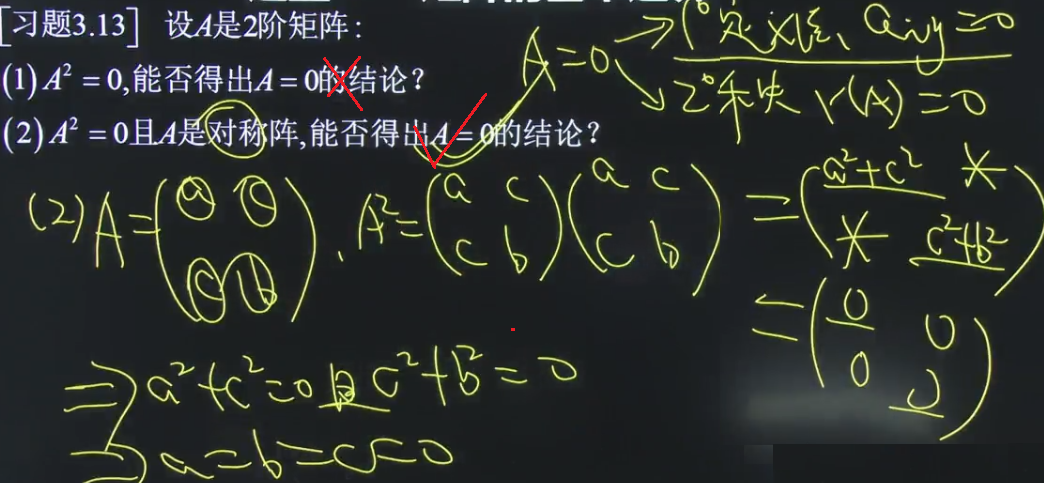 [习题3.13] 设A是2阶矩阵:
(1) A² = 0,能否得出A = 0的结论?
(2) A² = 0且A是对称阵,能否得出A = 0的结论?
A=0
1° 定义法、aij=0
2° 秩 r(A)=0
(2) A=(a c
c b), A²=(a c
c b)(a c
c b)
=(a²+c² *
* c²+b²)
=(0 0
0 0)
⇒ a²+c²=0 且 c²+b²=0
⇒ a=b=c=0